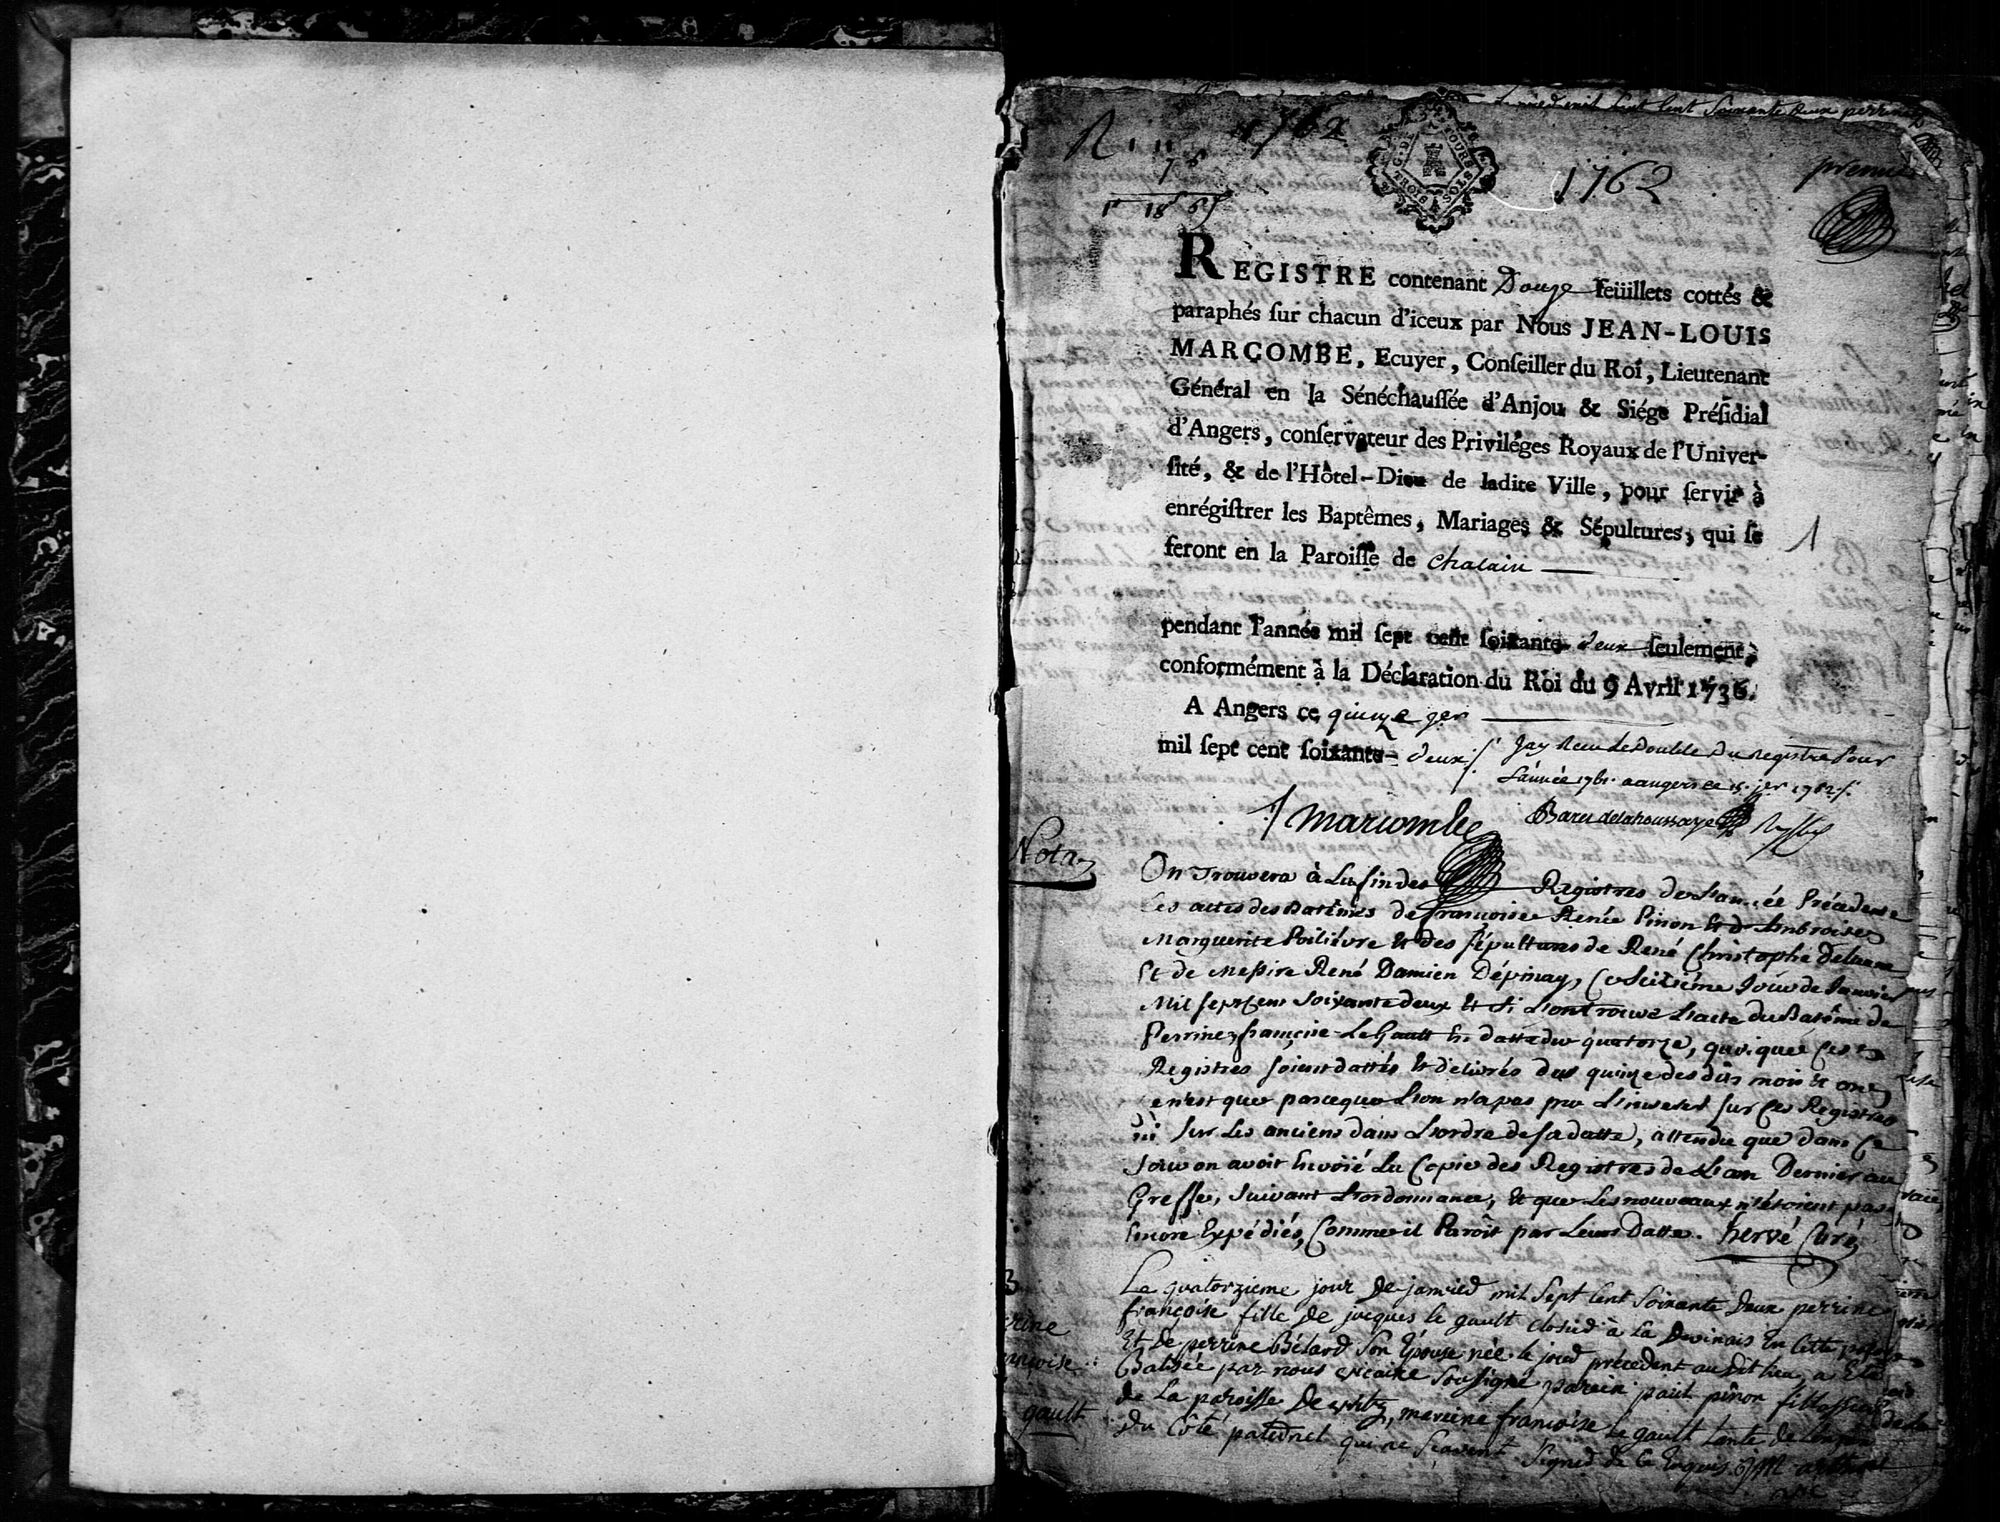 1762
G. DE TOURS
TROIS SOLS
1762
premier
REGISTRE contenant Douze feüillets cottés &
paraphés sur chacun d'iceux par Nous JEAN-LOUIS
MARCOMBE, Ecuyer, Conseiller du Roi, Lieutenant
Général en la Sénéchaussée d'Anjou & Siége Présidial
d'Angers, conservateur des Priviléges Royaux de l'Univer-
sité, & de l'Hôtel-Dieu de ladite Ville, pour servir à
enrégistrer les Baptêmes, Mariages & Sépultures, qui se
feront en la Paroisse de Chalain
1
pendant l'année mil sept cent soixante-deux seulement,
conformément à la Déclaration du Roi du 9 Avril 1736.
A Angers ce quinze jer
mil sept cent soixante-deux
Jay Receu le Double Du registre Pour
L'année 1761. a angers ce 15. jer 1762
Marcombe
Baru delahoussaye
Nota
On Trouvera à La fin des Registres de L'année Précédente
Les actes des Batêmes de françoise Renée Pinon Et d'Ambroise
Marguerite Poilièvre Et des sépultures de René Christophe Delaune
Et de Messire René Damien Dépinay, Ce seizième Jour de Janvier
Mil sept cent soixante deux Et si L'on trouve L'acte du Batême de
Perrine françoise Le Gault En datte du quatorze, quoique Ces
Registres soient dattés Et délivrés du quinze desdits mois Et an
c'en'est que parceque L'on n'a pas pu L'inserer sur Ces Registres
ni sur Les anciens dans L'ordre de sa datte, attendu que dans Ce
Jour on avoit Envoié La Copie des Registres de L'an Dernier au
Greffe, suivant L'ordonnance, Et que Les nouveaux n'étoient pas
Encore Expédiés, Comme il Paroît par Leur Datte. Hervé Curé
B
Perrine
françoise
gault
Le quatorzieme jour De janvier mil Sept Cent Soixante Deux perrine
françoise fille de jacques le gault closier à La Devinais En Cette paroisse
Et De perrine Bélard Son Epouse née le jour précédent audit lieu, a Eté
Batisée par nous vicaire Soussigné parein paul pinon fillassier
de La paroisse De vritz, mareine françoise Le gault tante de L'enfant
Du Côté paternel qui ne Scavent Signer de Ce Enquis